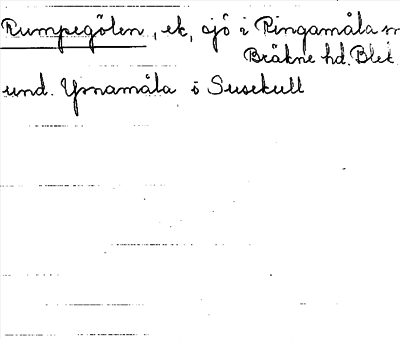 Rumpegölen, ek, sjö i Ringamåla
Bräkne hd. Blek
und. Ysnamåla i Susekull